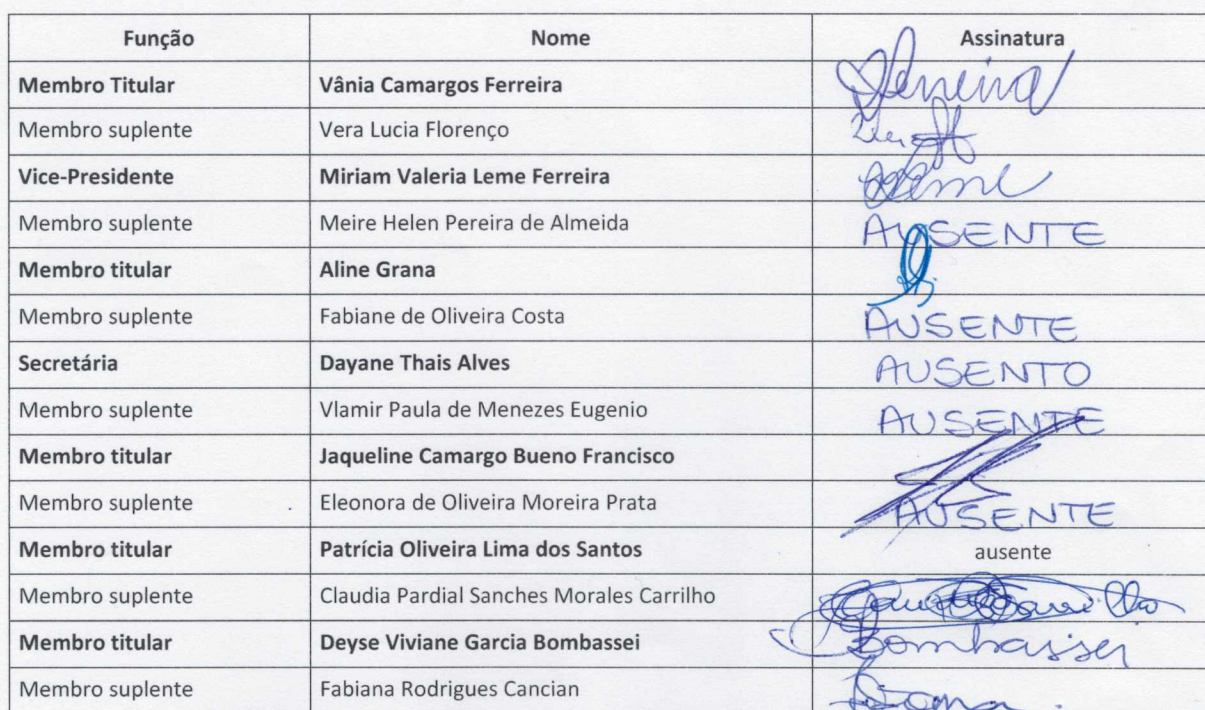 Função Nome Assinatura
Membro Titular Vânia Camargos Ferreira Ferreira
Membro suplente Vera Lucia Florenço
Vice-Presidente Miriam Valeria Leme Ferreira Leme
Membro suplente Meire Helen Pereira de Almeida AUSENTE
Membro titular Aline Grana
Membro suplente Fabiane de Oliveira Costa AUSENTE
Secretária Dayane Thais Alves AUSENTO
Membro suplente Vlamir Paula de Menezes Eugenio AUSENTE
Membro titular Jaqueline Camargo Bueno Francisco
Membro suplente Eleonora de Oliveira Moreira Prata AUSENTE
Membro titular Patrícia Oliveira Lima dos Santos ausente
Membro suplente Claudia Pardial Sanches Morales Carrilho
Membro titular Deyse Viviane Garcia Bombassei Bombassei
Membro suplente Fabiana Rodrigues Cancian